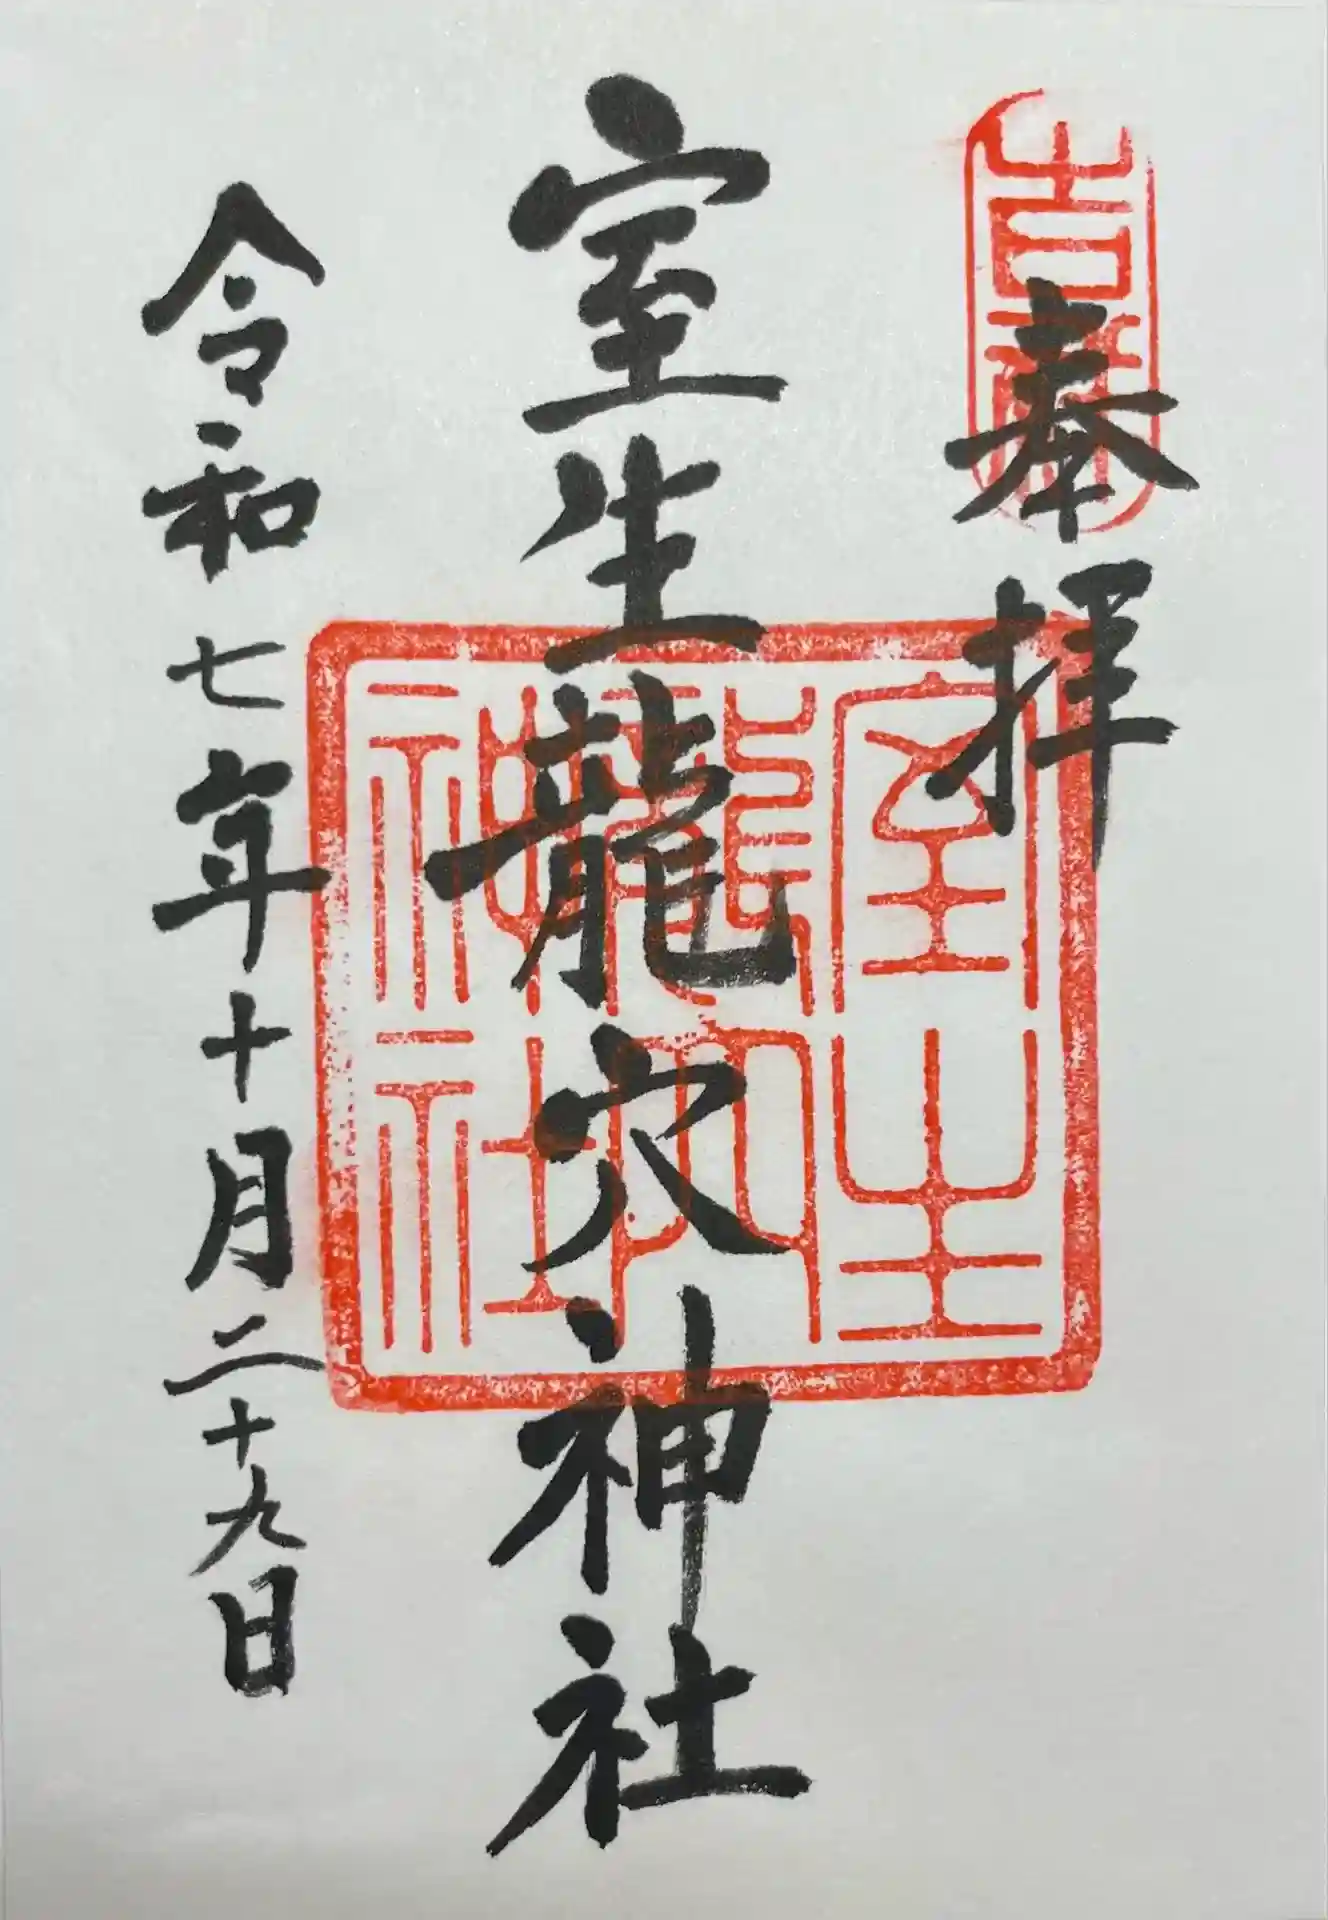 奉拝
吉祥
室生龍穴神社
室生
龍穴
神社
令和七年十月二十九日